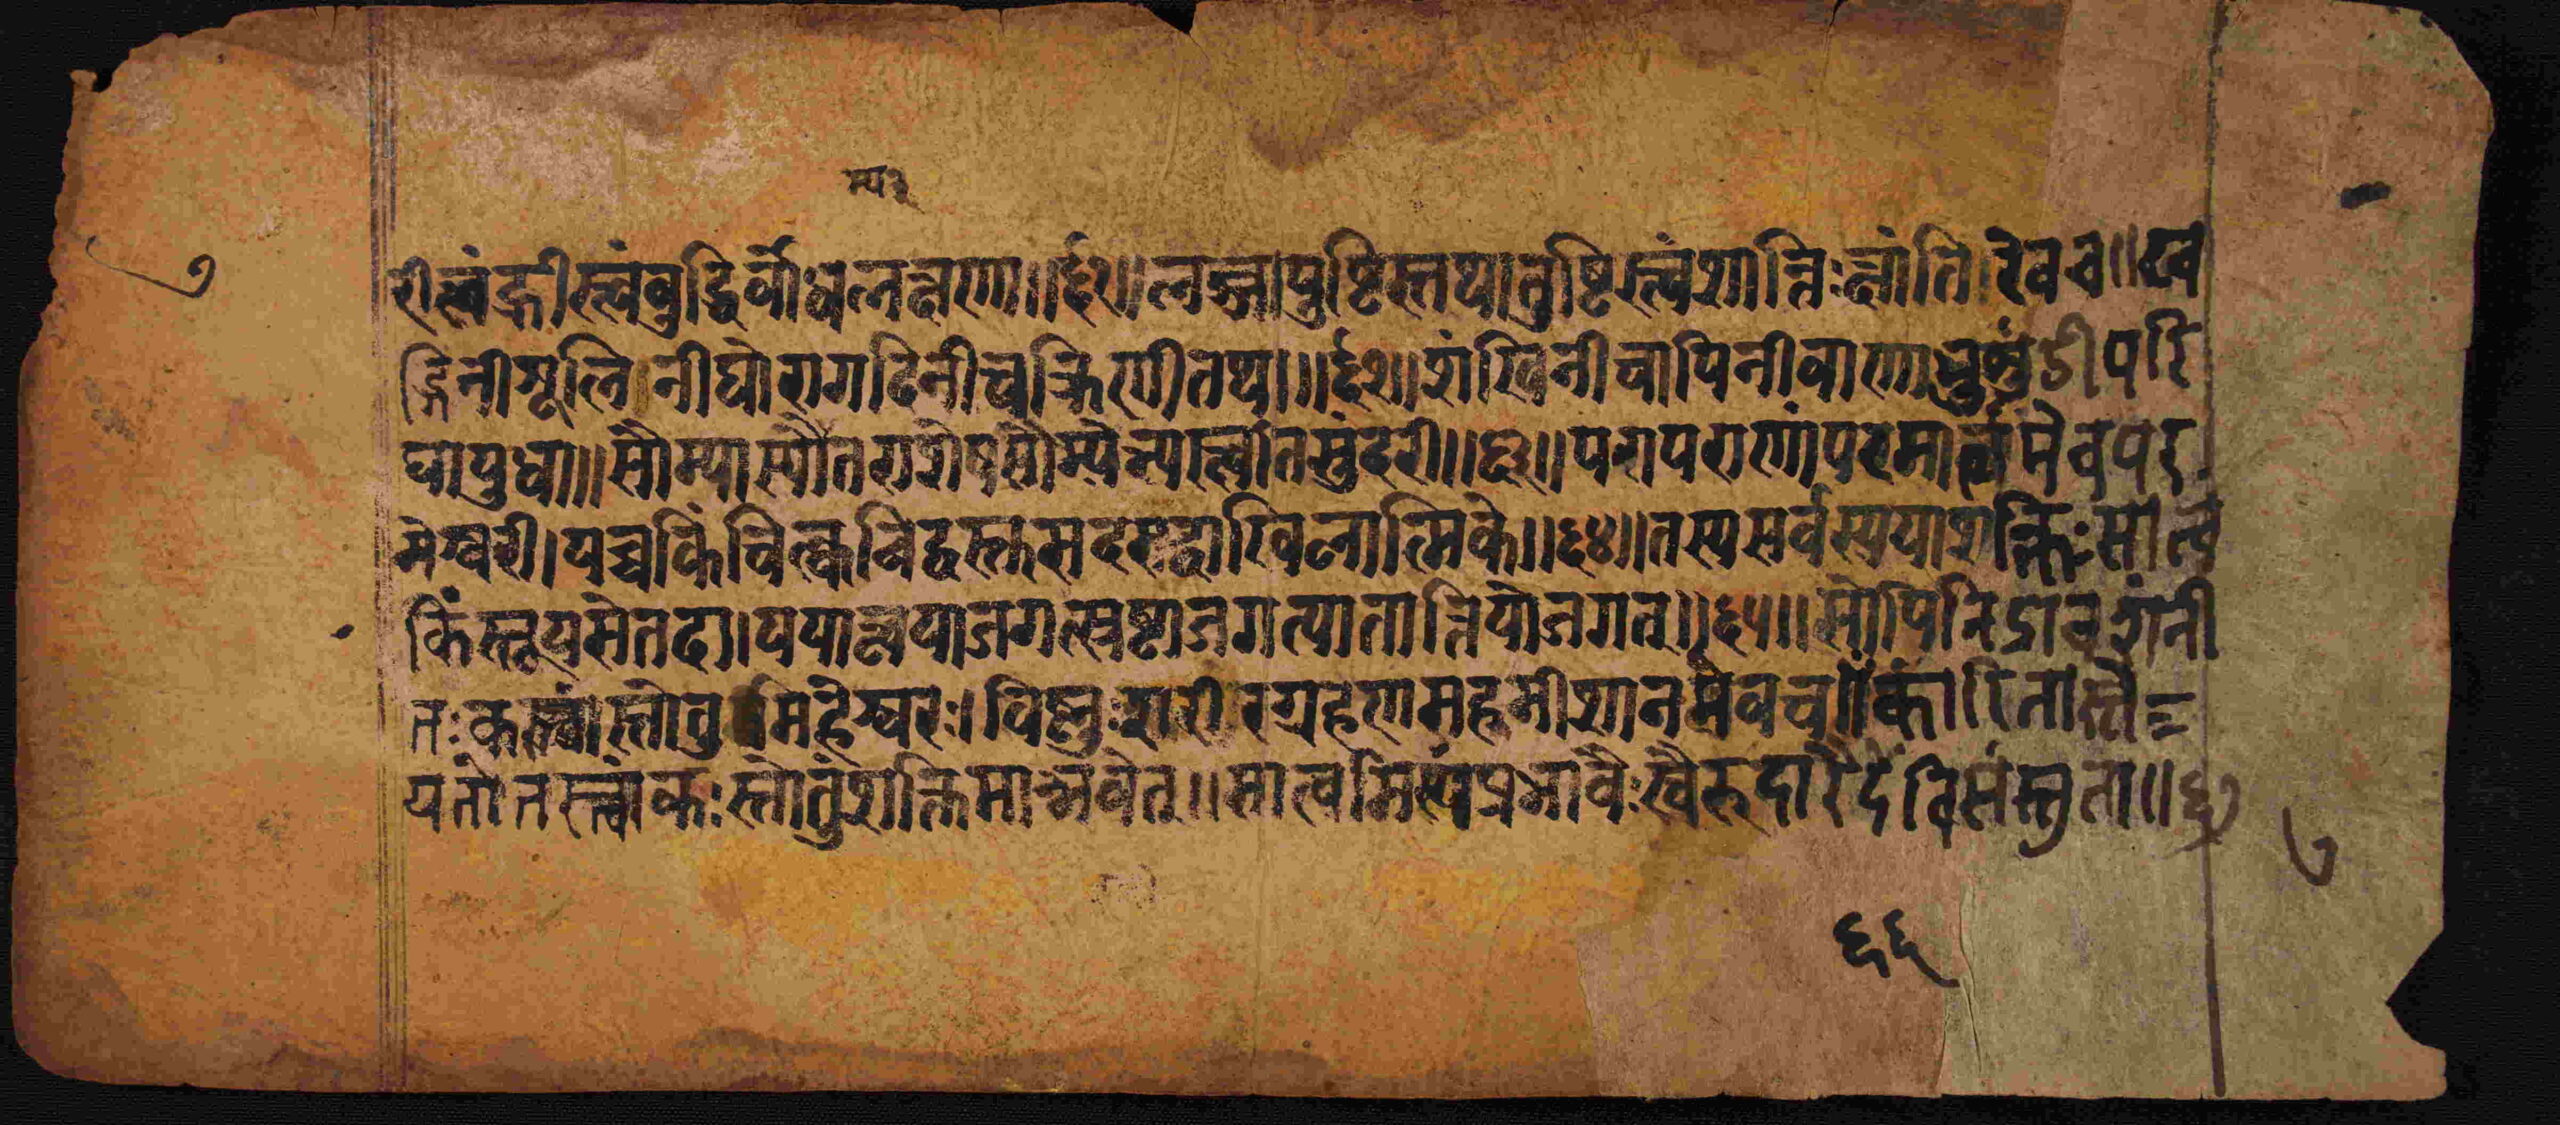 म्य३
रीत्वंह्रीस्त्वंबुद्धिर्बोधलक्षणा॥६१॥लज्जापुष्टिस्तथातुष्टिस्त्वंशान्तिःक्षांतिरेवच॥खड्
गिनीशूलिनीघोरागदिनीचक्रिणीतथा॥६२॥शंखिनीचापिनीवाणाभुशुंडीपरि
घायुधा॥सौम्यासौम्यतराशेषसौम्येभ्यस्त्वतिसुंदरी॥६३॥परापराणांपरमात्वमेवपर
मेश्वरी।यच्चकिंचित्क्वचिद्वस्तुसदसद्वाखिलात्मिके॥६४॥तस्यसर्वस्ययाशक्तिःसात्वं
किंस्तूयसेतदा।ययात्वयाजगत्स्रष्टाजगत्पातात्तियोजगत्॥६५॥सोपिनिद्रावशंनी
तःकस्त्वांस्तोतुमिहेश्वरः।विष्णुःशरीरग्रहणमहमीशानमेवच॥कारितास्ते
यतोतस्त्वांकःस्तोतुंशक्तिमान्भवेत्॥सात्वमित्थंप्रभावैःस्वैरुदारैर्देविसंस्तुता॥६७
७
७
६६